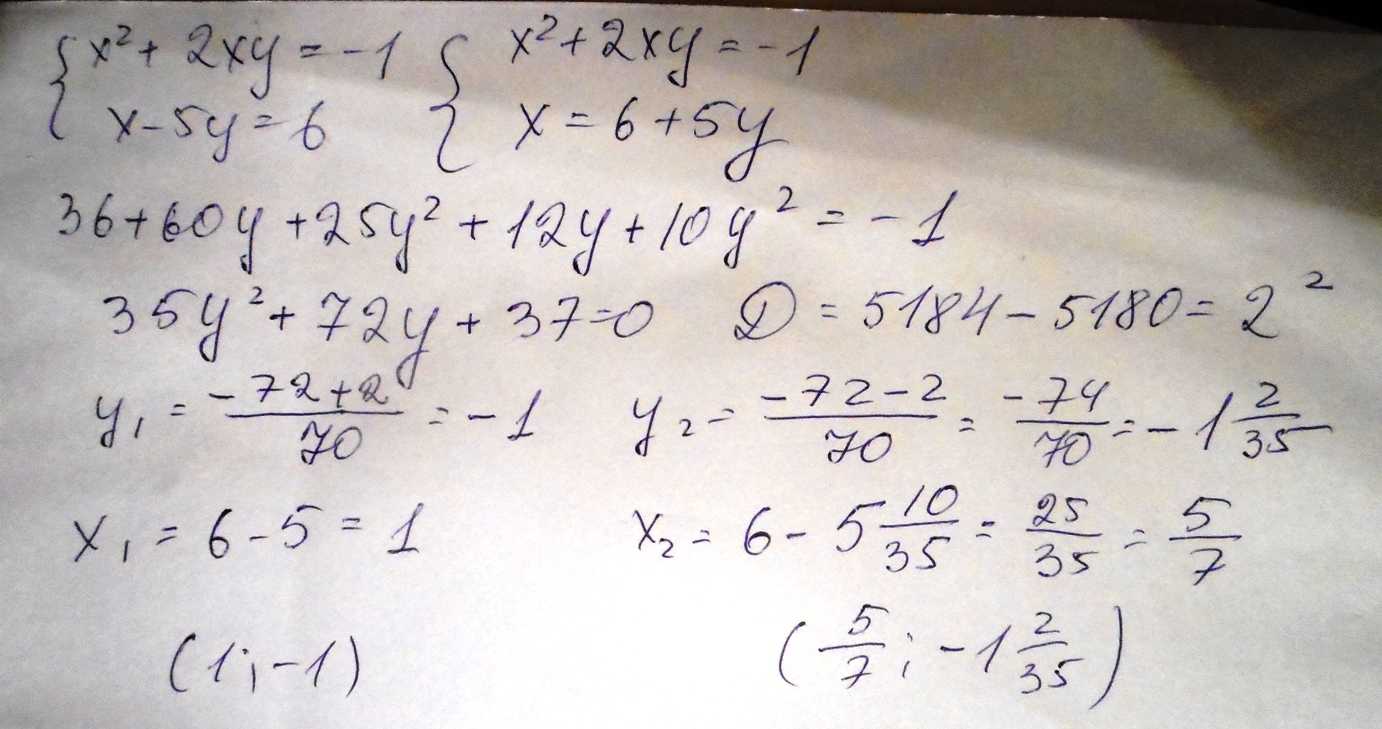 { x² + 2xy = -1 { x² + 2xy = -1
x - 5y = 6 x = 6 + 5y
36 + 60y + 25y² + 12y + 10y² = -1
35y² + 72y + 37 = 0 D = 5184 - 5180 = 2²
y₁ = (-72+2)/70 = -1 y₂ = (-72-2)/70 = -74/70 = -1 2/35
x₁ = 6 - 5 = 1 x₂ = 6 - 5 10/35 = 25/35 = 5/7
(1; -1) (5/7; -1 2/35)